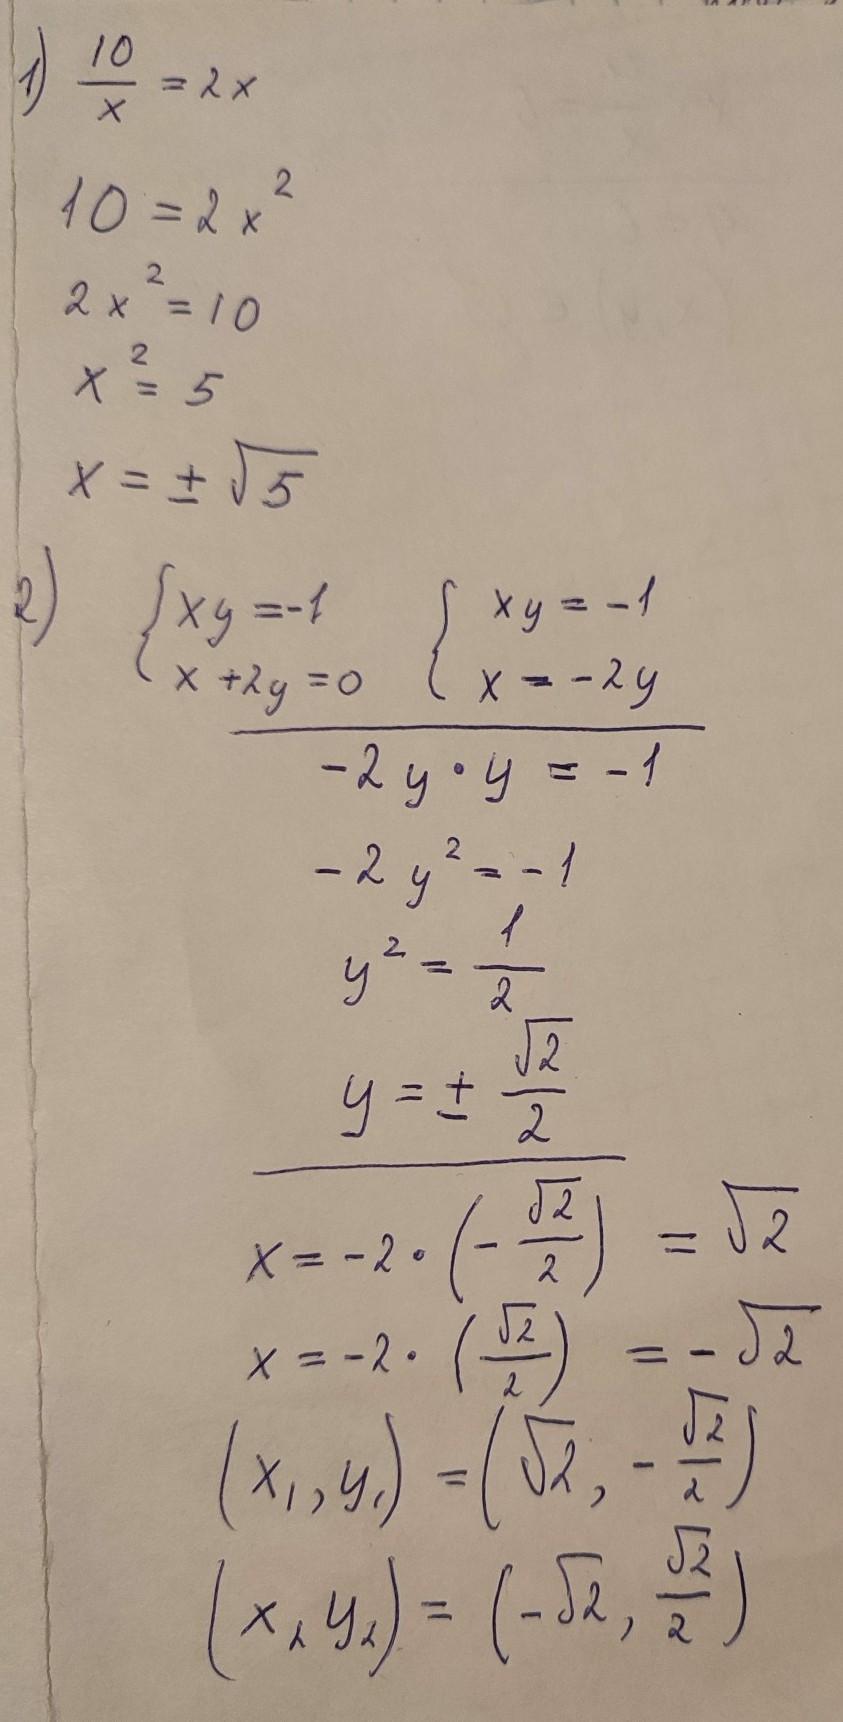 1) 10/x = 2x
10 = 2x²
2x² = 10
x² = 5
x = ± √5
2) { xy = -1 { xy = -1
x + 2y = 0 x = -2y
-2y · y = -1
-2y² = -1
y² = 1/2
y = ± √2/2
x = -2 · (-√2/2) = √2
x = -2 · (√2/2) = -√2
(x₁, y₁) = (√2, -√2/2)
(x₂ y₂) = (-√2, √2/2)